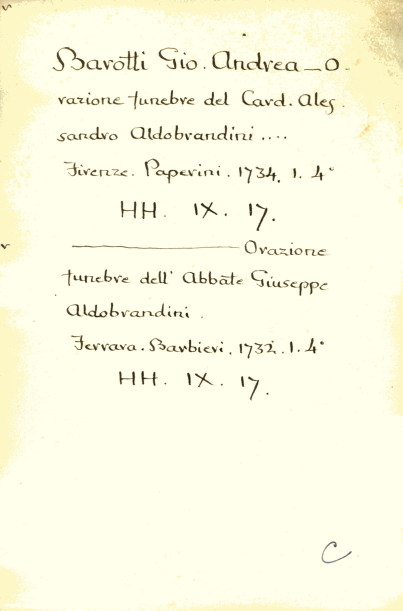 Barotti Gio. Andrea – O
razione funebre del Card. Ales
sandro Aldobrandini ....
Firenze. Paperini. 1734. 1. 4°
HH. IX. 17.
——— Orazione
funebre dell' Abbate Giuseppe
Aldobrandini.
Ferrara. Barbieri. 1732. 1. 4°
HH. IX. 17.
C